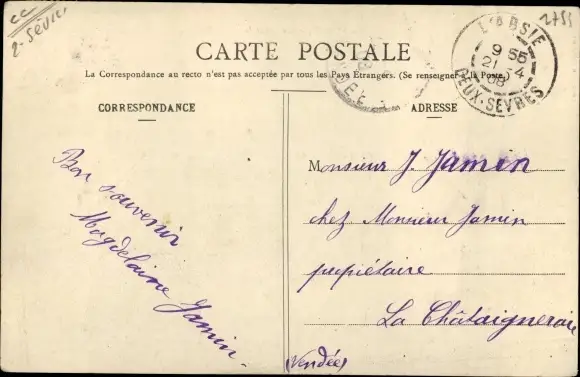 2755
CARTE POSTALE
La Correspondance au recto n'est pas acceptée par tous les Pays Etrangers. (Se renseigner à la Poste)
L'ABSIE
9 55
21 4
08
DEUX-SÈVRES
CORRESPONDANCE
ADRESSE
Bon souvenir
Magdelaine Jamin
Monsieur J. Jamin
chez Monsieur Jamin
propiétaire
La Châtaigneraie
(Vendée)